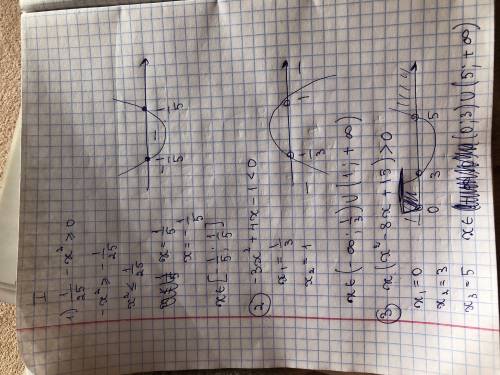 I
1) 1/25 - x² ≥ 0
-x² ≥ -1/25
x² ≤ 1/25
x = 1/5
x = -1/5
x ∈ [-1/5; 1/5]
-1/5 - 1/5
2 -3x² + 4x - 1 < 0
x₁ = 1/3
x₂ = 1
- 1/3 1 -
x ∈ (-∞; 1/3) ∪ (1; +∞)
3 x(x² - 8x + 15) > 0
x₁ = 0
x₂ = 3
x₃ = 5
0 3 5
x ∈ (0; 3) ∪ (5; +∞)